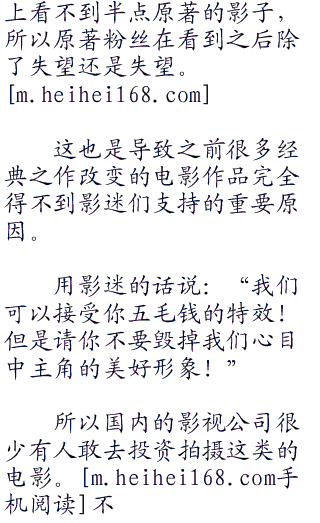 上看不到半点原著的影子，
所以原著粉丝在看到之后除
了失望还是失望。
[m.heihei168.com]
这也是导致之前很多经
典之作改变的电影作品完全
得不到影迷们支持的重要原
因。
用影迷的话说：“我们
可以接受你五毛钱的特效！
但是请你不要毁掉我们心目
中主角的美好形象！”
所以国内的影视公司很
少有人敢去投资拍摄这类的
电影。[m.heihei168.com手
机阅读]不